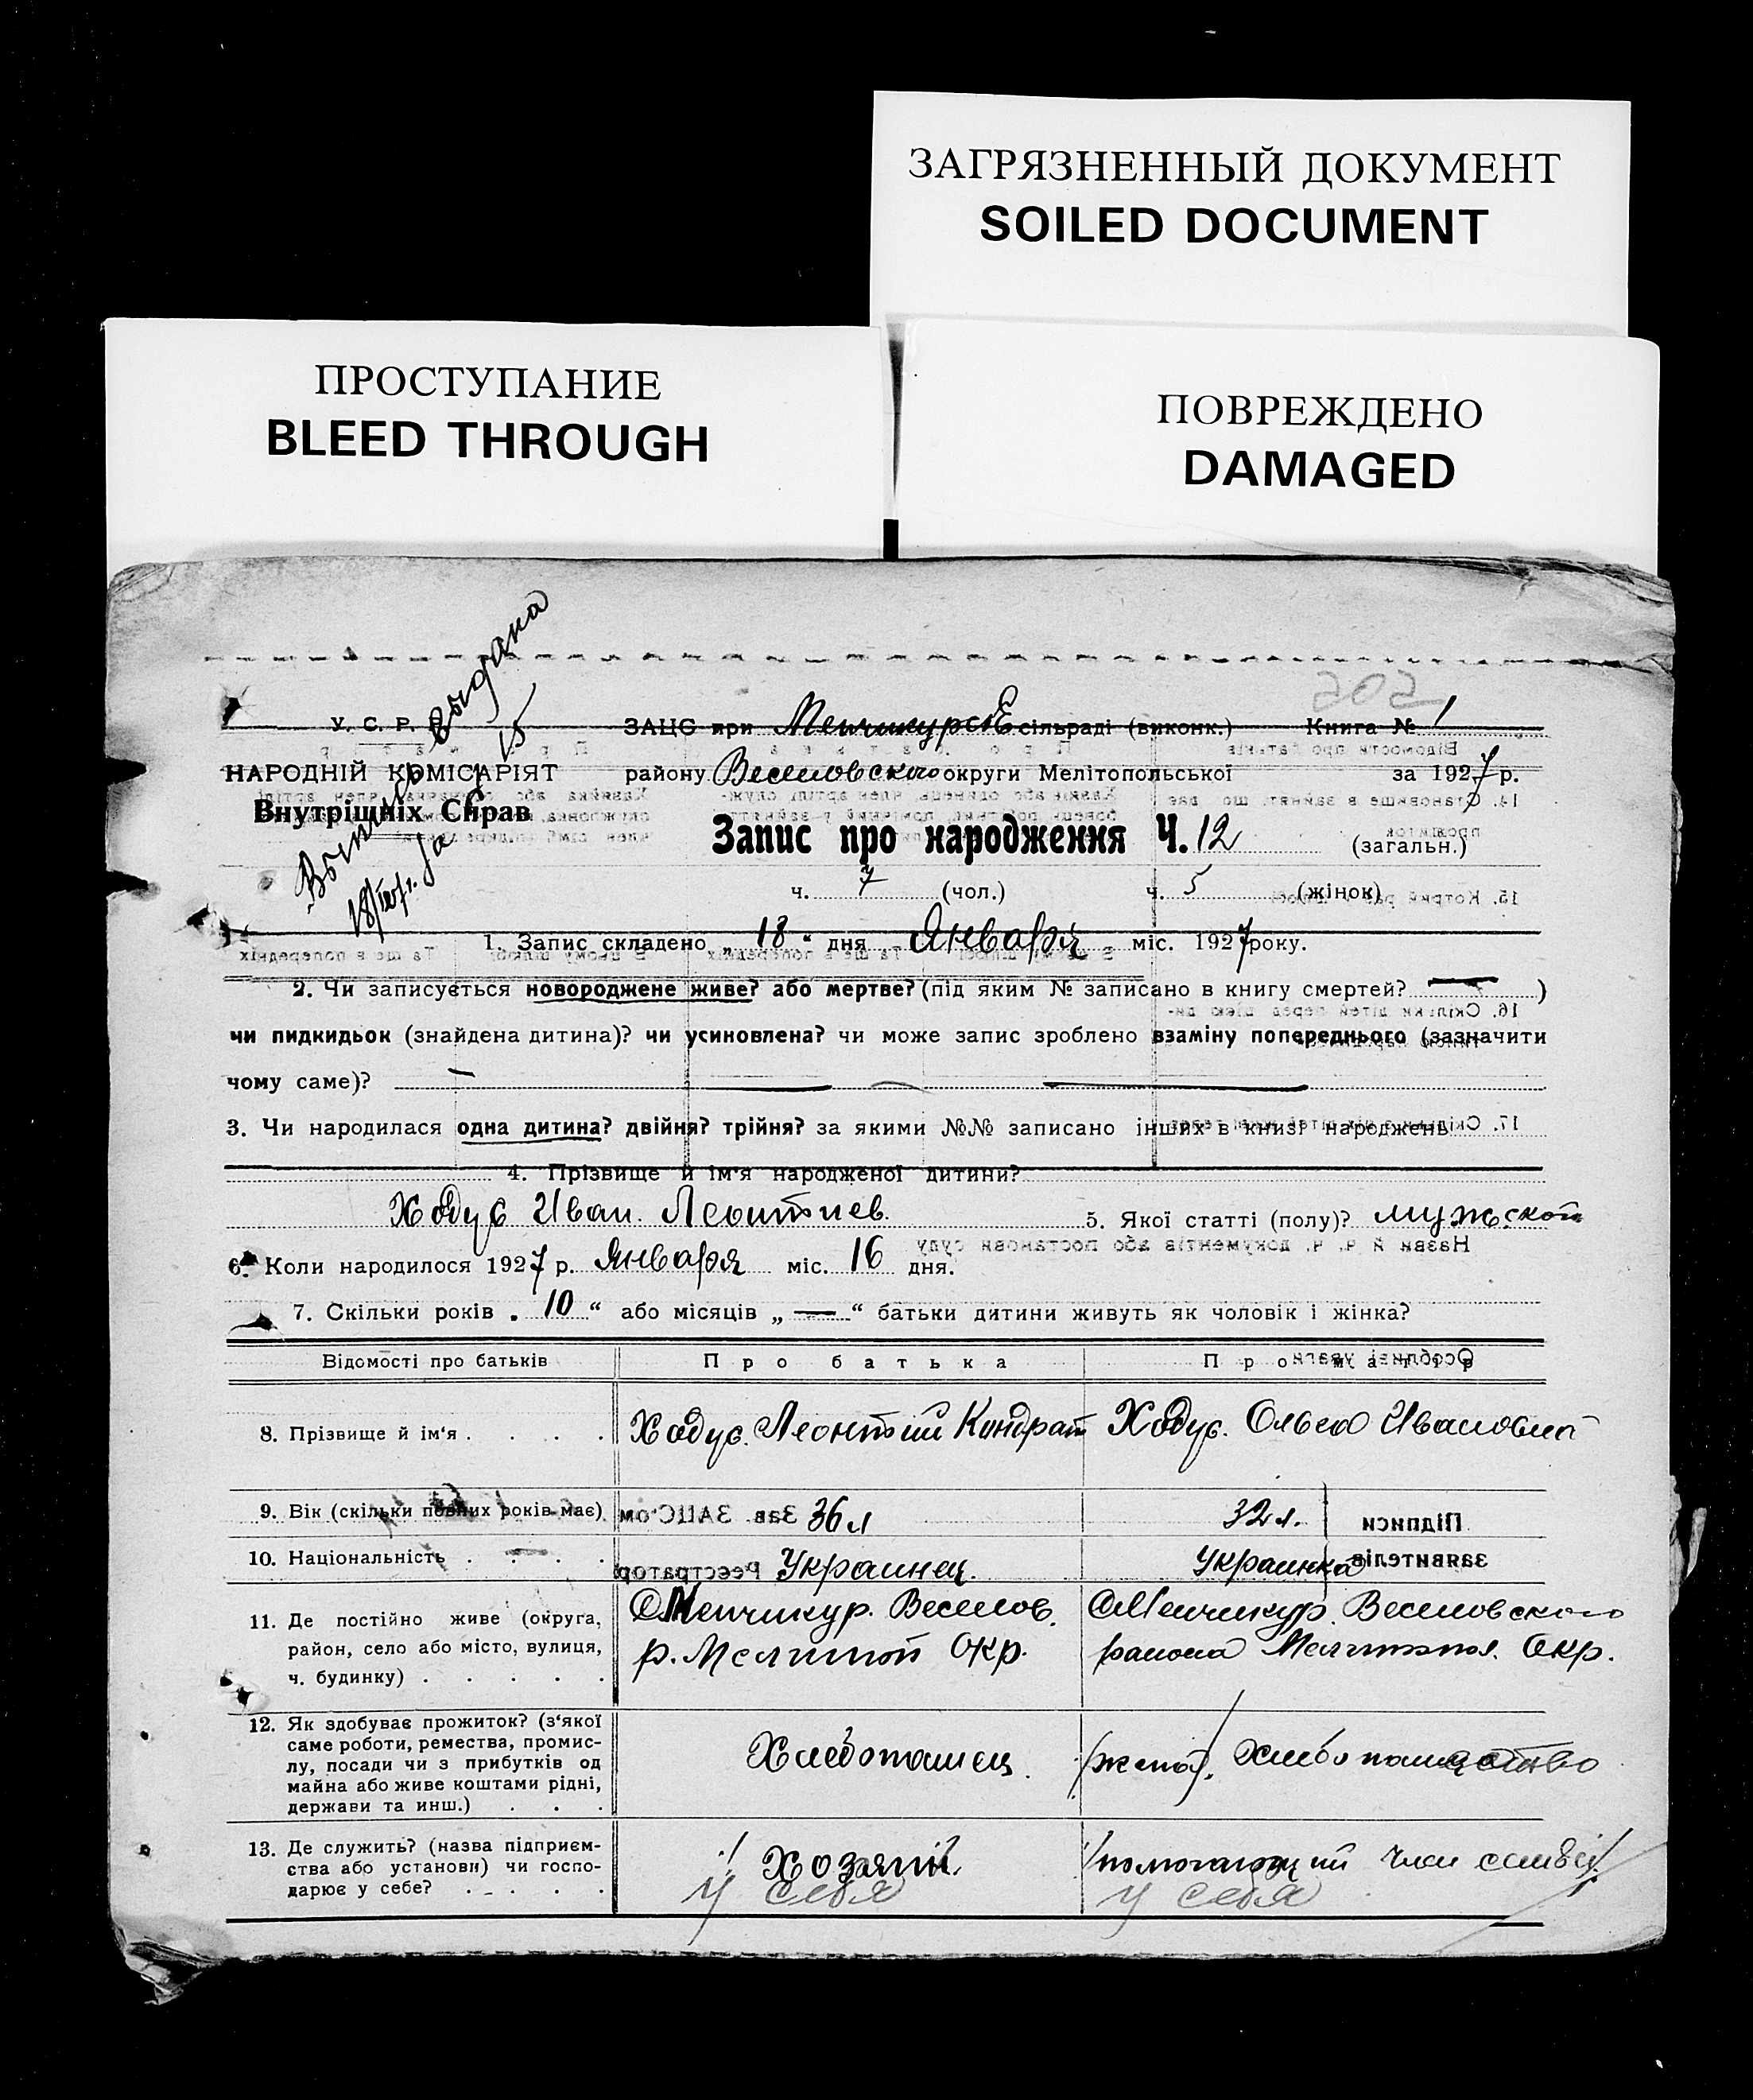 ЗАГРЯЗНЕННЫЙ ДОКУМЕНТ
SOILED DOCUMENT
ПРОСТУПАНИЕ
BLEED THROUGH
ПОВРЕЖДЕНО
DAMAGED
Выпись выдана
18/I 27 г. За 15
202
У. С. Р. Р.
НАРОДНІЙ КОМІСАРІЯТ
Внутрішніх Справ
ЗАЦС при Менчикурск сільраді (виконк.) Книга № 1
району Веселовского округи Мелітопольської за 1927 р.
Запис про народження Ч. 12 (загальн.)
ч. 7 (чол.) ч. 5 (жінок)
1. Запис складено „ 18 “ дня Января міс. 1927 року.
2. Чи записується новороджене живе? або мертве? (під яким № записано в книгу смертей? — )
чи пидкидьок (знайдена дитина)? чи усиновлена? чи може запис зроблено взаміну попереднього (зазначити
чому саме)? —
3. Чи народилася одна дитина? двійня? трійня? за якими №№ записано інших в книзі народжень
4. Прізвище й ім'я народженої дитини?
Ходус Иван Леонтиев. 5. Якої статті (полу)? мужской
6. Коли народилося 1927 р. Января міс. 16 дня.
7. Скільки років „ 10 “ або місяців „ — “ батьки дитини живуть як чоловік і жінка?
Відомості про батьків Про батька Про матір
8. Прізвище й ім'я . . . . Ходус Леонтий Кондрат Ходус. Ольга Ивановна
9. Вік (скільки повних років має) 36 л 32 л.
10. Національність . . . . Украинец. Украинка
11. Де постійно живе (округа,
район, село або місто, вулиця,
ч. будинку) . . . . .
С Менчикур. Веселов.
р. Мелитоп Окр.
С Менчикур. Веселовского
района Мелитопол. Окр.
12. Як здобуває прожиток? (з'якої
саме роботи, ремества, промис-
лу, посади чи з прибутків од
майна або живе коштами рідні,
держави та инш.) . . .
Хлебопашец
(жена). Хлебопашество
13. Де служить? (назва підприєм-
ства або установи) чи госпо-
дарює у себе? . . . .
Хозяин
у себя
/помогающий член семьи/
у себя